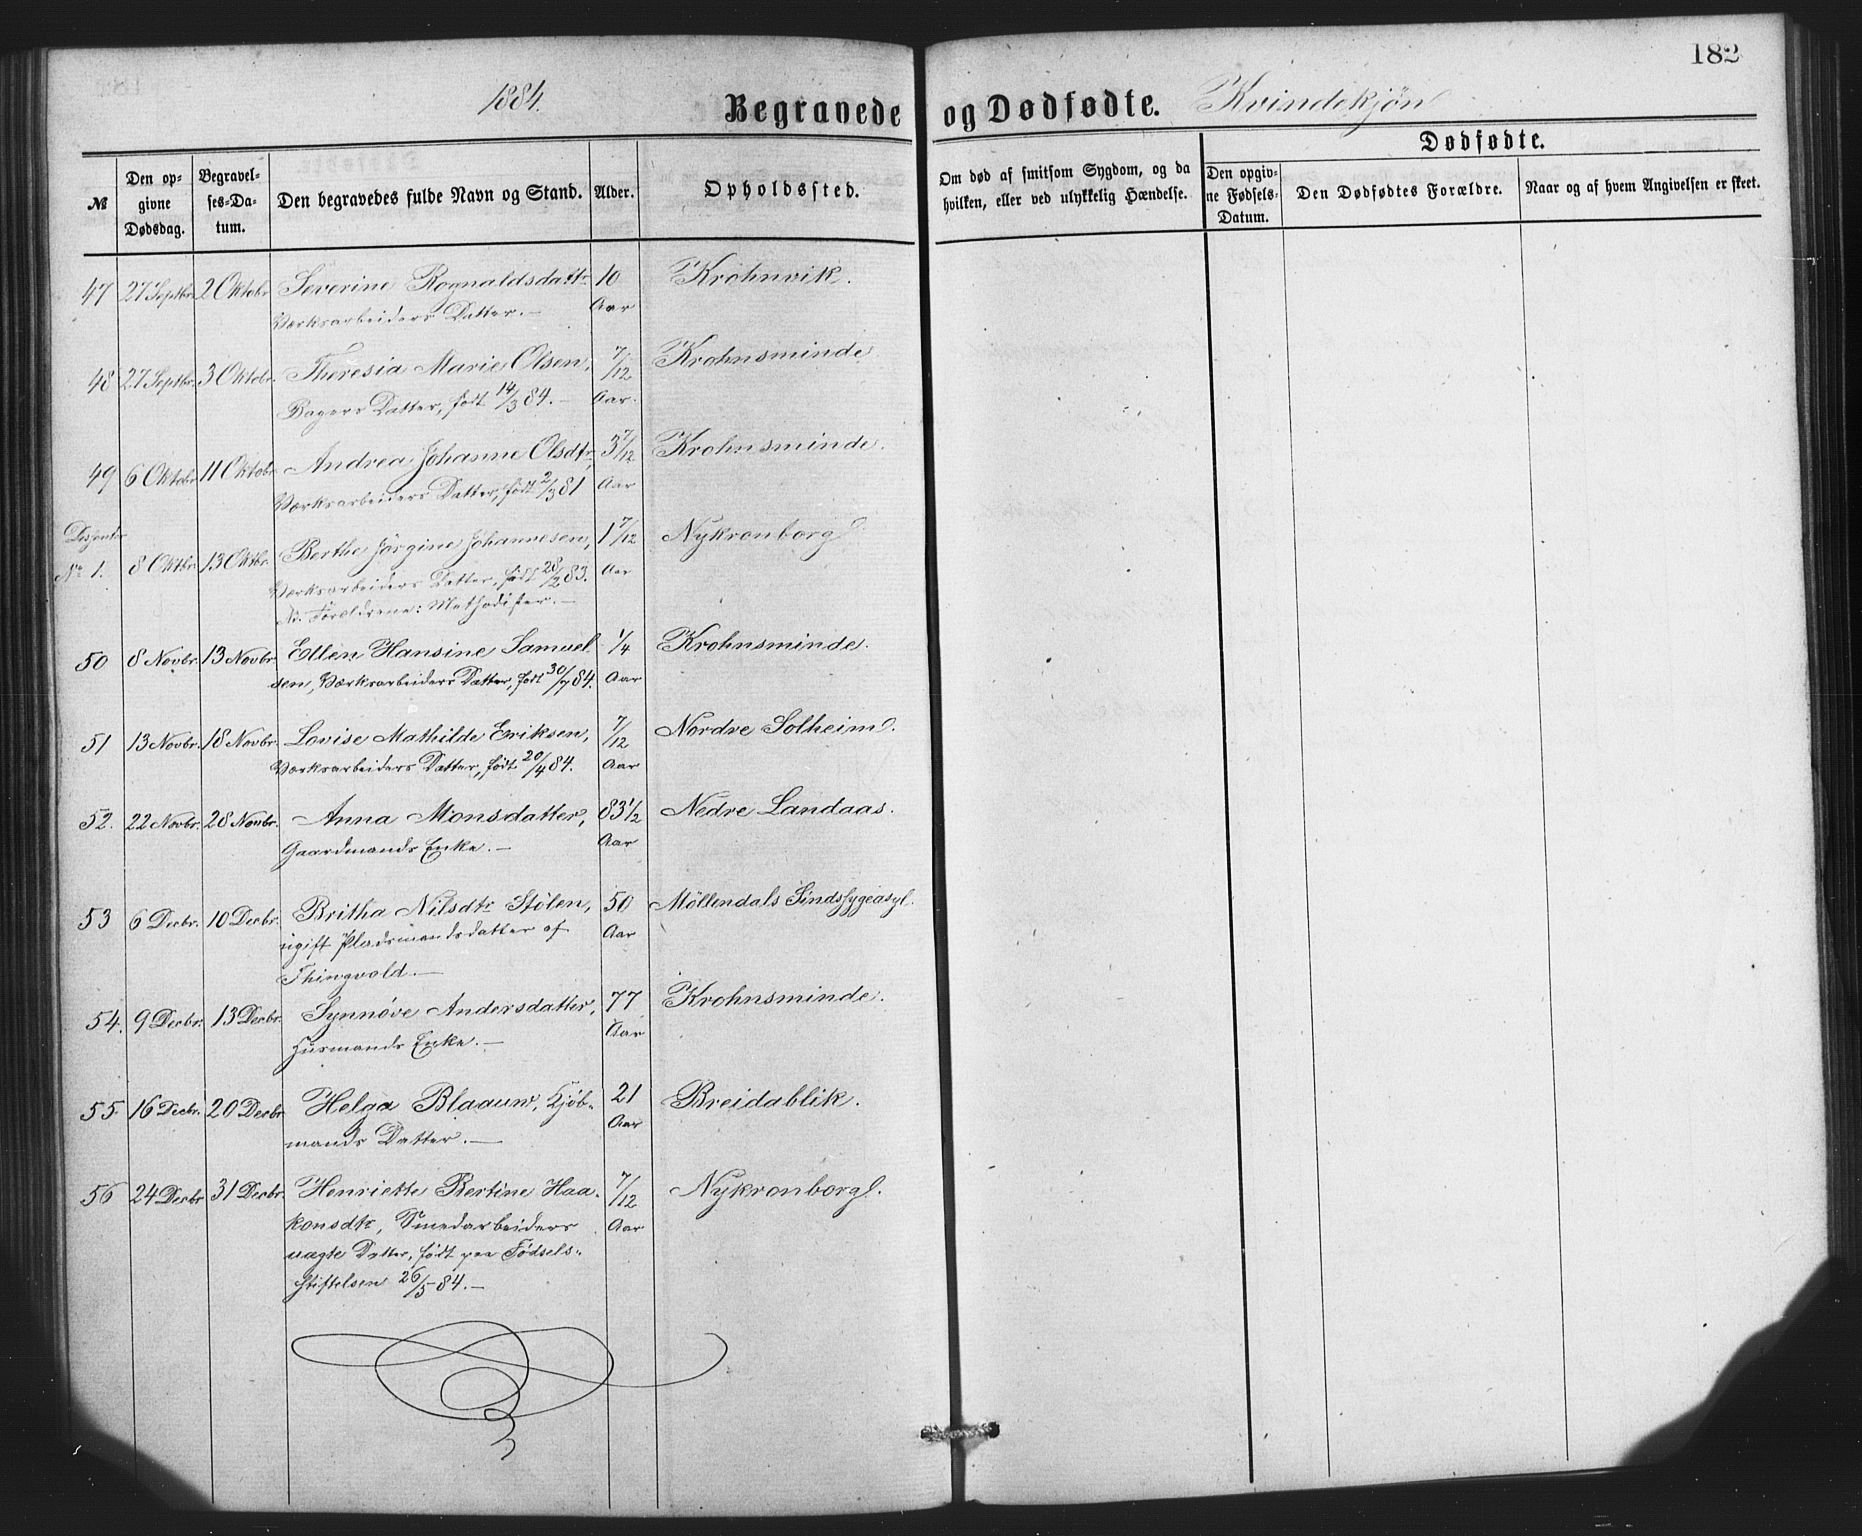 182
1884.
Begravede og Dødfødte. Kvindekjøn
№
Den opgivne Dødsdag.
Begravelses-Datum.
Den begravedes fulde Navn og Stand.
Alder.
Opholdssted.
Om død af smitsom Sygdom, og da hvilken, eller ved ulykkelig Hændelse.
Dødfødte.
Den opgivne Fødsels-Datum.
Den Dødfødtes Forældre.
Naar og af hvem Angivelsen er skeet.
47 27 Septbr. 2 Oktobr Severine Rognaldsdattr 10 Krohnvik.
Værksarbeiders Datter.— Aar
48 27 Septbr. 3 Oktobr. Theresia Marie Olsen, 7/12 Krohnsminde
Bagers Datter, født 14/3 84.— Aar.
49 6 Oktobr 11 Oktobr Andrea Johanne Olsdtr, 3 7/12 Krohnsminde.
Værksarbeiders Datter, født 2/3 81 Aar
Dissenter
No 1. 8 Oktbr. 13 Oktbr. Berthe Jørgine Johannesen, 1 7/12 Nykronborg
Værksarbeiders Datter, født 28/2 83. Aar
Forældrene: Methodister.—
50 8 Novbr. 13 Novbr. Ellen Hansine Samuel 1/4 Krohnsminde.
sen, Værksarbeiders Datter, født 30/7 84. Aar
51 13 Novbr. 18 Novbr. Lovise Mathilde Eriksen, 7/12 Nordre Solheim.
Værksarbeiders Datter, født 20/4 84. Aar
52. 22 Novbr. 28 Novbr. Anna Monsdatter, 83 1/2 Nedre Landaas.
Gaardmands Enke.— Aar
53 6 Decbr. 10 Decbr. Britha Nilsdtr Stølen, 50 Möllendals Sindssygeasyl.
ugift Pladsmandsdatter af Aar
Thingvold.—
54. 9 Decbr. 13 Decbr. Synnøve Andersdatter, 77 Krohnsminde.
Husmands Enke.— Aar
55 16 Decbr. 20 Decbr Helga Blaauw, Kjøb- 21 Breidablik.
mands Datter.— Aar
56 24 Decbr 31 Decbr. Henriette Bertine Haa- 7/12 Nykronborg.
konsdtr, Smedarbeiders Aar
uægte Datter, født paa Fødsels-
stiftelsen 26/5 84.—